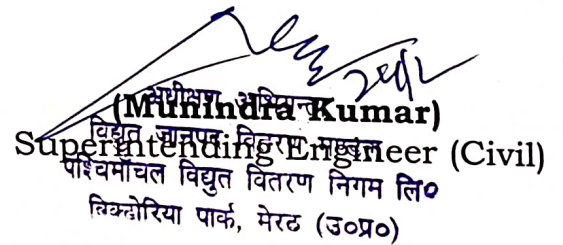 अधीक्षण अभियन्ता
(Munindra Kumar)
विद्युत जानपद वितरण मण्डल
Superintending Engineer (Civil)
पश्चिमाँचल विद्युत वितरण निगम लि०
विक्टोरिया पार्क, मेरठ (उ०प्र०)